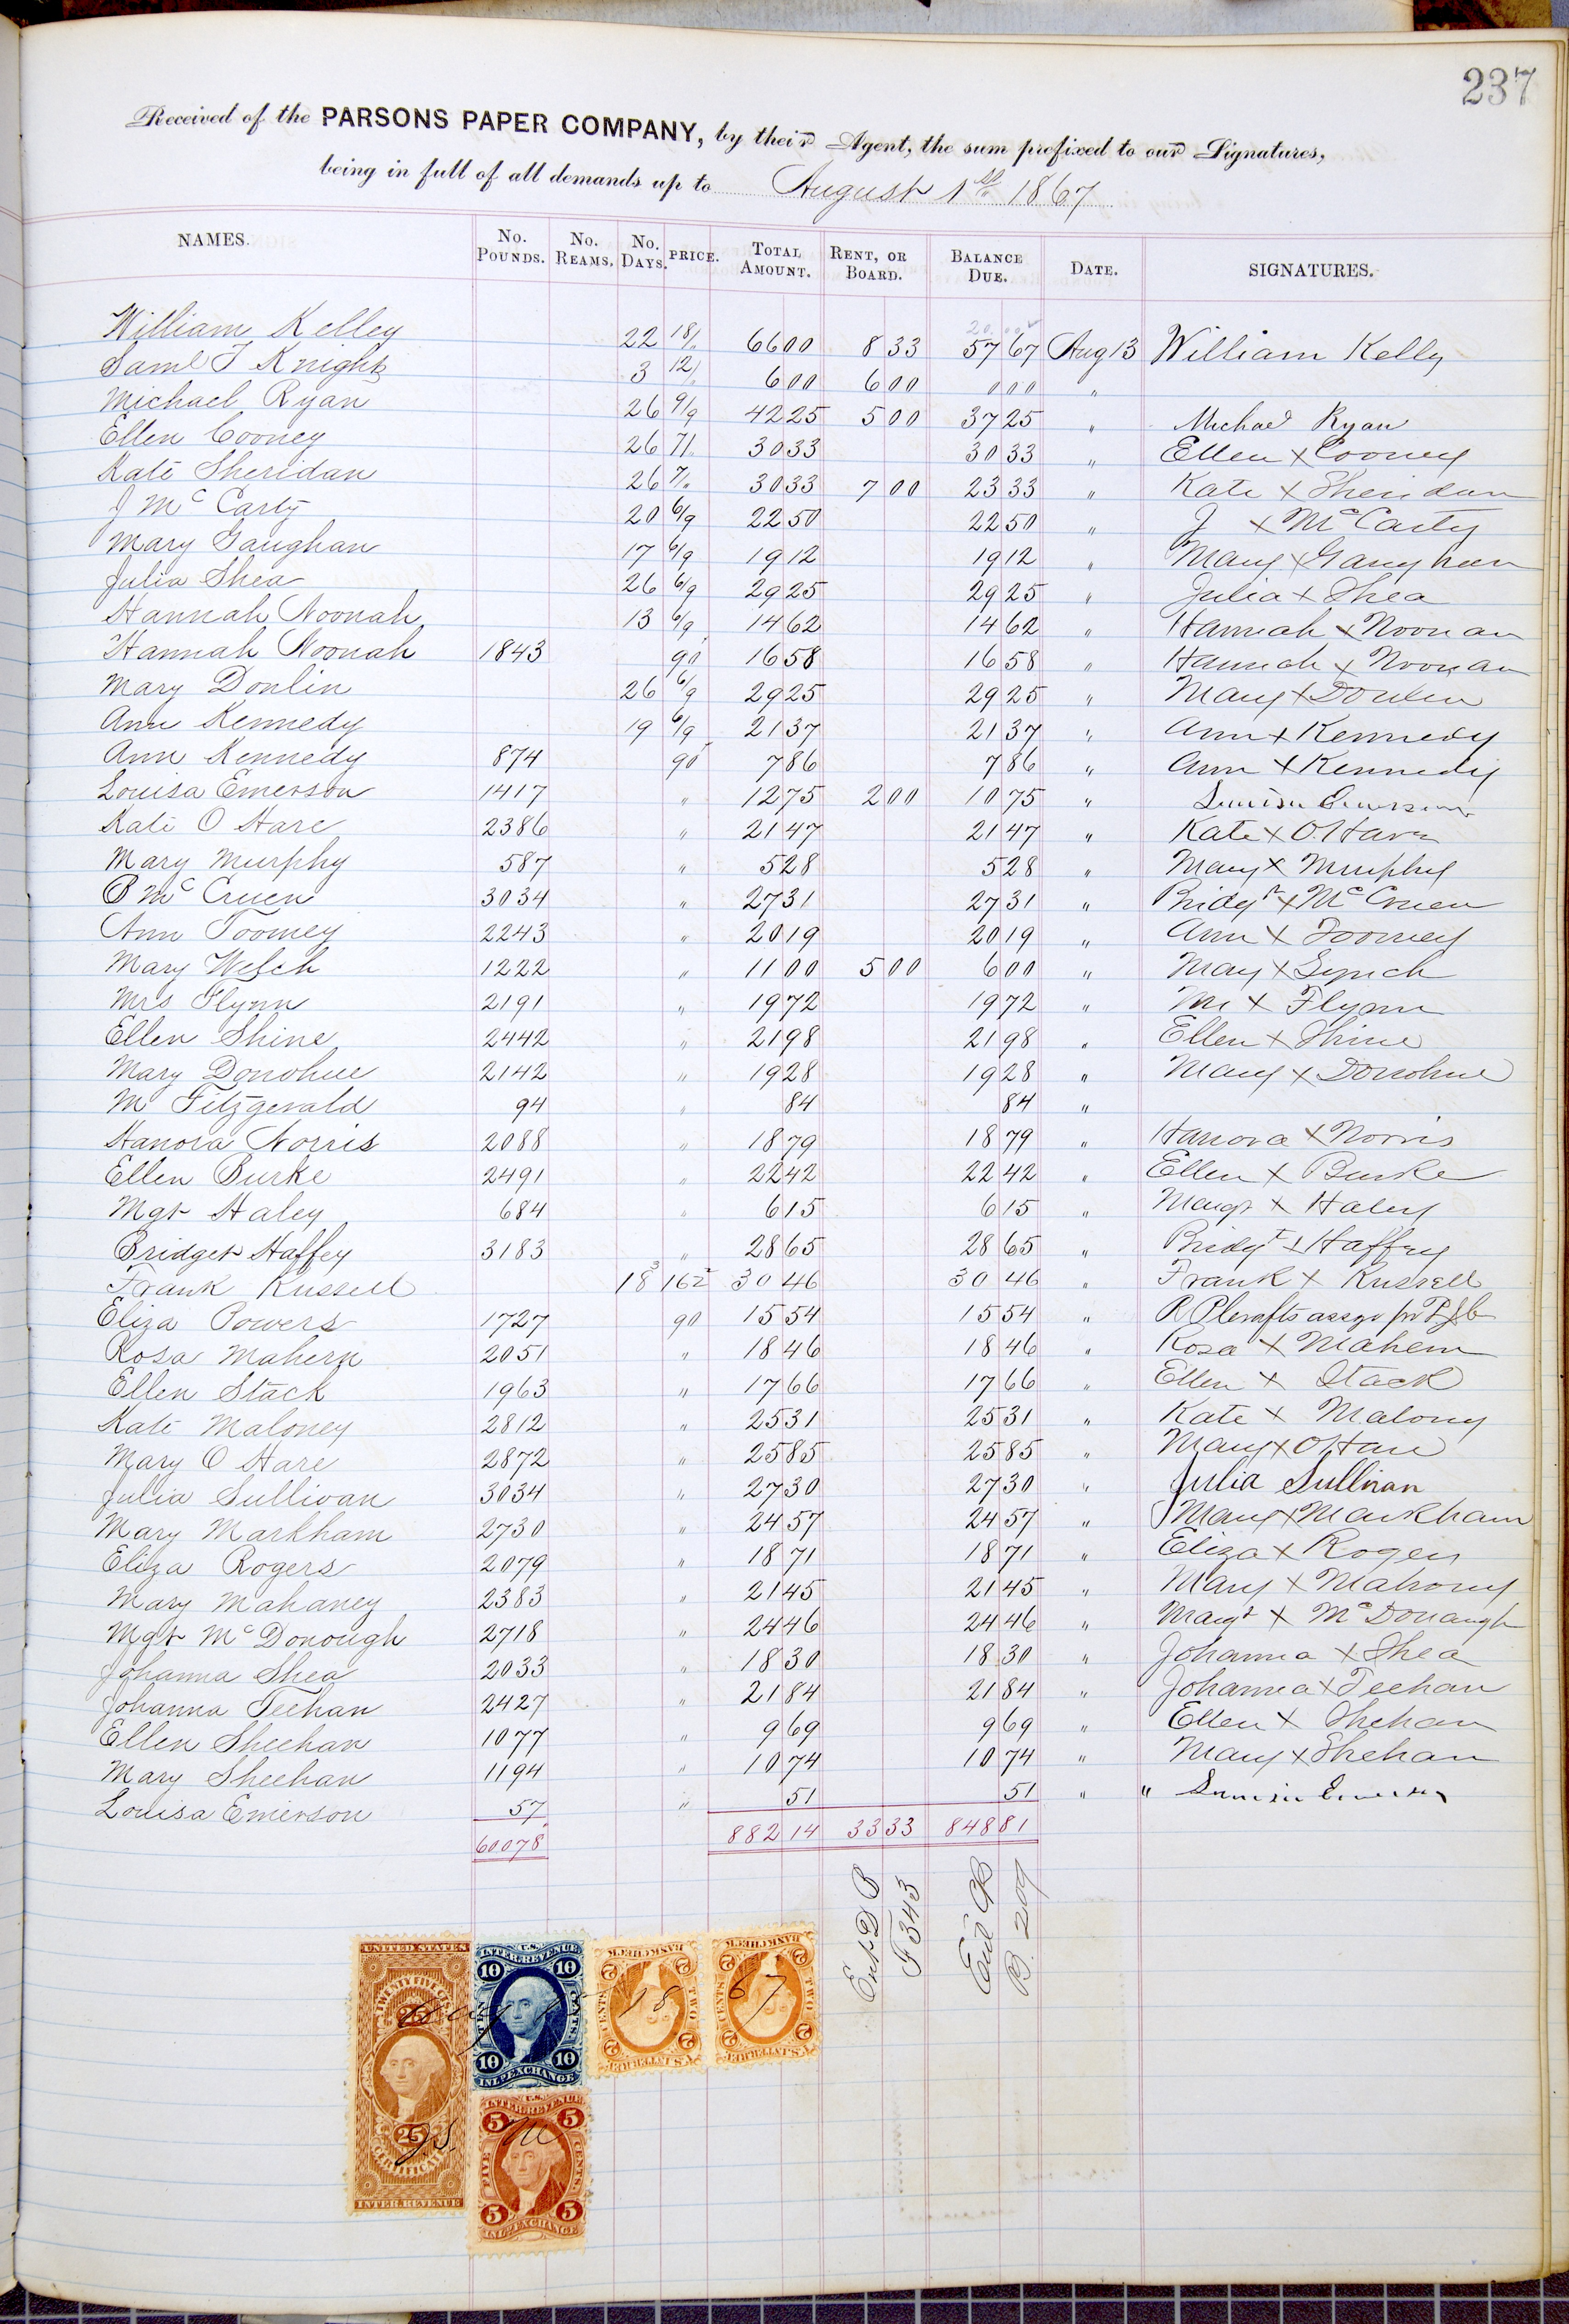 237
Received of the PARSONS PAPER COMPANY, by their Agent, the sum prefixed to our Signatures,
being in full of all demands up to August 1st 1867
NAMES. No. POUNDS. No. REAMS. No. DAYS. PRICE. TOTAL AMOUNT. RENT, OR BOARD. BALANCE DUE. DATE. SIGNATURES.
William Kelley 22 18/ 66 00 8 33 57 67 Aug 13 William Kelly
Saml T Knight 3 12/ 6 00 6 00 0 00 "
Michael Ryan 26 9/9 42 25 5 00 37 25 " Michael Ryan
Ellen Cooney 26 7/ 30 33 30 33 " Ellen x Cooney
Kate Sheridan 26 7/ 30 33 7 00 23 33 " Kate x Sheridan
J Mc Carty 20 6/9 22 50 22 50 " J x Mc Carty
Mary Gaughan 17 6/9 19 12 19 12 " Mary x Gaughan
Julia Shea 26 6/9 29 25 29 25 " Julia x Shea
Hannah Noonah 13 6/9 14 62 14 62 " Hannah x Noonan
Hannah Noonah 1843 90 16 58 16 58 " Hannah x Noonan
Mary Donlin 26 6/9 29 25 29 25 " Mary x Donlen
Ann Kennedy 19 6/9 21 37 21 37 " Ann x Kennedy
Ann Kennedy 874 90 7 86 7 86 " Ann x Kennedy
Louisa Emerson 1417 " 12 75 2 00 10 75 " Louisa Emerson
Kate O Hare 2386 " 21 47 21 47 " Kate x O.Hara
Mary Murphy 587 " 5 28 5 28 " Mary x Murphy
B Mc Cruen 3034 " 27 31 27 31 " Bridgt x Mc Cruen
Ann Toomey 2243 " 20 19 20 19 " Ann x Toomey
Mary Welch 1222 " 11 00 5 00 6 00 " Mary x Lynch
Mrs Flynn 2191 " 19 72 19 72 " Mr x Flynn
Ellen Shine 2442 " 21 98 21 98 " Ellen x Shine
Mary Donohue 2142 " 19 28 19 28 " Mary x Donohue
M Fitzgerald 94 " 84 84 "
Hanora Norris 2088 " 18 79 18 79 " Hanora x Norris
Ellen Burke 2491 " 22 42 22 42 " Ellen x Burke
Mgt Haley 684 " 6 15 6 15 " Margt x Haley
Bridget Haffey 3183 " 28 65 28 65 " Bridgt x Haffey
Frank Russell 18 3 162 30 46 30 46 " Frank x Russell
Eliza Powers 1727 90 15 54 15 54 "
Rosa Mahern 2051 " 18 46 18 46 " Rosa x Mahern
Ellen Stack 1963 " 17 66 17 66 " Ellen x Stack
Kate Maloney 2812 " 25 31 25 31 " Kate x Malony
Mary O Hare 2872 " 25 85 25 85 " Mary x O Hare
Julia Sullivan 3034 " 27 30 27 30 " Julia Sullivan
Mary Markham 2730 " 24 57 24 57 " Mary x Markham
Eliza Rogers 2079 " 18 71 18 71 " Eliza x Rogers
Mary Mahaney 2383 " 21 45 21 45 " Mary x Mahony
Mgt Mc Donough 2718 " 24 46 24 46 " Margt x Mc Donaugh
Johanna Shea 2033 " 18 30 18 30 " Johanna x Shea
Johanna Teehan 2427 " 21 84 21 84 " Johanna x Teehan
Ellen Sheehan 1077 " 9 69 9 69 " Ellen x Shehan
Mary Sheehan 1194 " 10 74 10 74 " Mary x Shehan
Louisa Emerson 57 " 51 51 " " Louisa Emerson
60078 882 14 33 33 848 81
Ent D B
F 343
Ent CB
B. 209
UNITED STATES
TWENTY FIVE CENTS
25
CERTIFICATE
INTER. REVENUE
U.S. INTER. REVENUE
10 10
TEN CENTS
10 10
INL. EXCHANGE
BANK CHECK
2 2
TWO CENTS
2 2
U.S. INTER. REV.
BANK CHECK
2 2
TWO CENTS
2 2
U.S. INTER. REV.
Aug 18 67
U.S. INTER. REVENUE
5 5
FIVE CENTS
5 5
INL. EXCHANGE